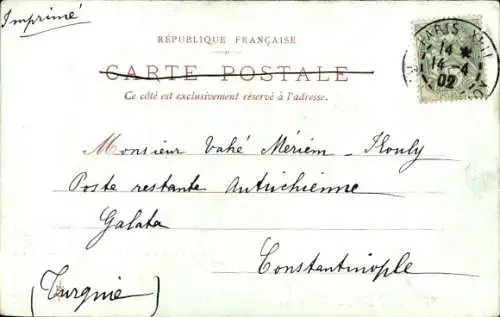 Imprimé
RÉPUBLIQUE FRANÇAISE
CARTE POSTALE
Ce côté est exclusivement réservé à l'adresse.
PARIS XVII
14
14 - 4
02
Monsieur Vahé Mériem - Kouly
Poste restante Autrichienne
Galata
Constantinople
(Turquie)